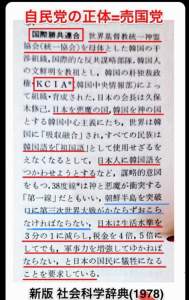 自民党の正体=売国党
国際勝共連合 世界基督教統一神霊
協会(統一協会)を母体とした韓国の干
渉組織,国際的な反共謀略部隊.韓国人
の文鮮明を教祖とし,韓国の朴独裁政
権・KCIA*(韓国中央情報部)によっ
て組織・育成された.日本の会長は久保
木修己.日本を悪魔の国,韓国を神のほ
とする韓国中心主義にたち,世界は韓国
に「吸収融合」され,すべての民族は
韓国語を「祖国語」として使用せざるを
えなくなるとして,日本人に韓国語を
つかわせようとするなど,謀略的意図
をもつ.38度線*は神と悪魔が衝突する
「第一線だ」ともいい,朝鮮半島を突破
口に第三次世界大戦がかならずおこらな
ければならない,日本は生活水準を
3分の1に減らし,税金を4倍,5倍に
してでも,軍事力を増強してゆかねば
ならない,と日本の国民に犠牲になる
ことを要求している.
新版 社会科学辞典(1978)